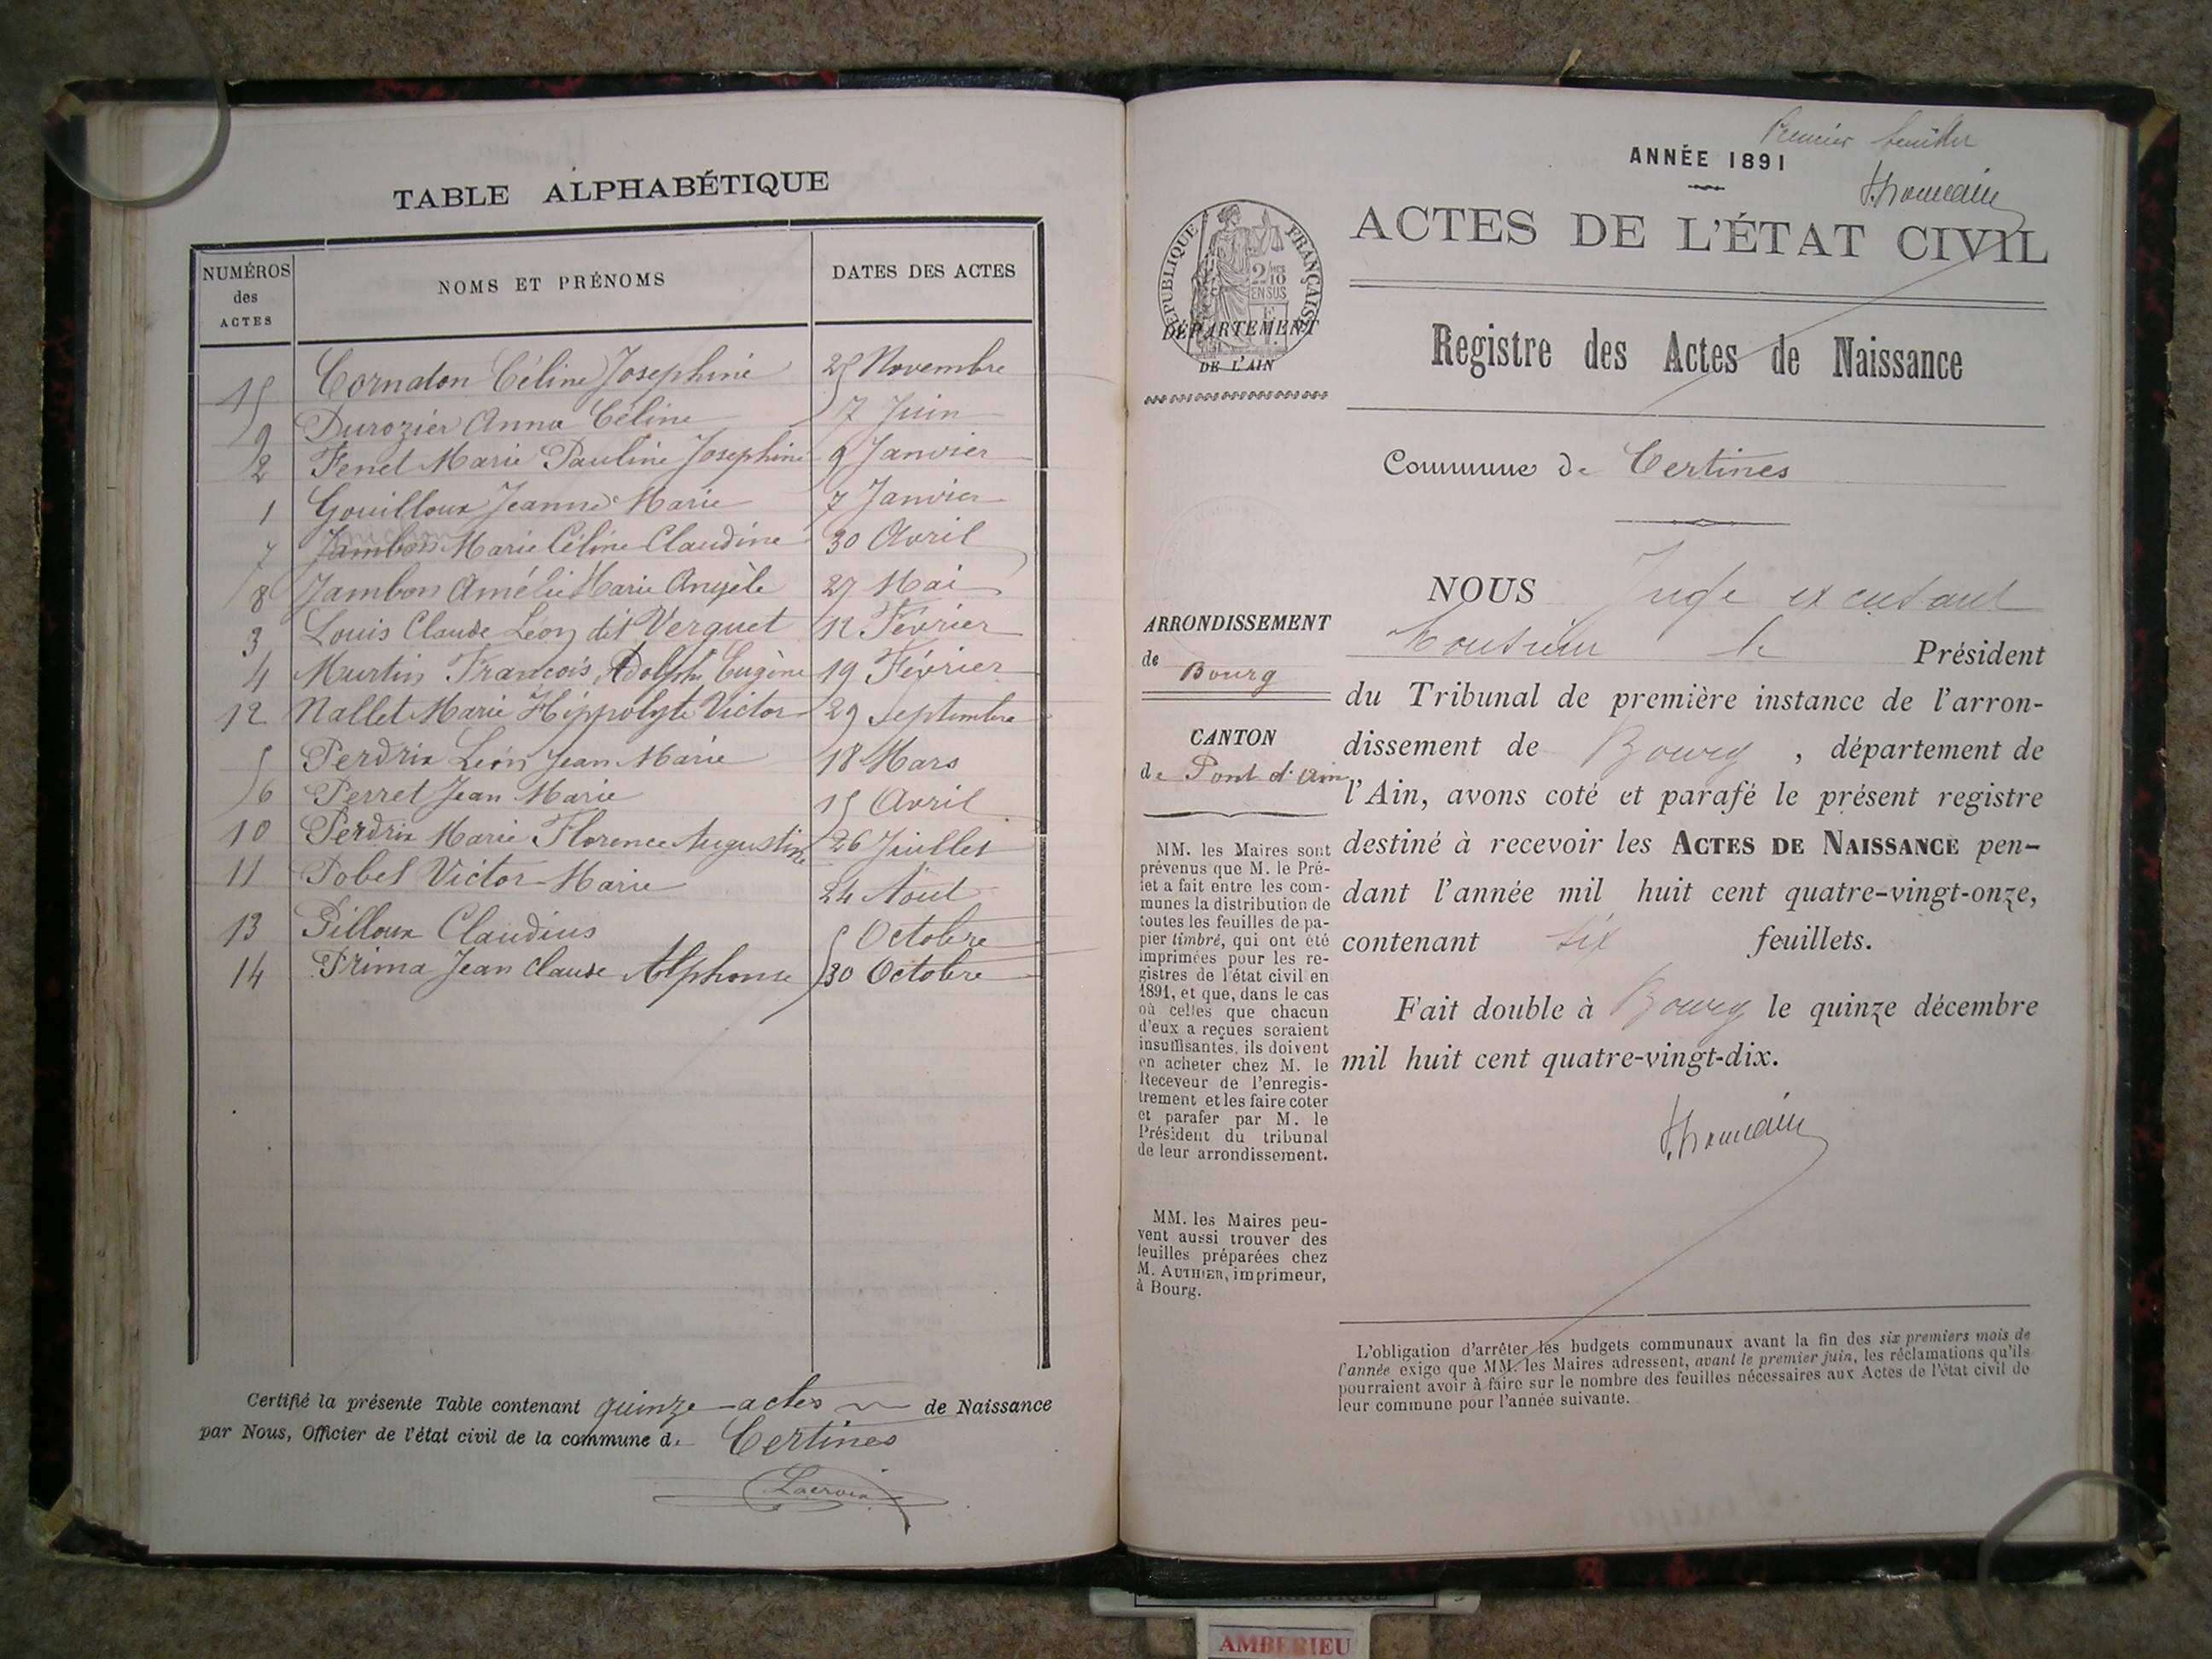 TABLE ALPHABÉTIQUE
NUMÉROS des ACTES
NOMS ET PRÉNOMS
DATES DES ACTES
15 Cornaton Céline Josephine 25 Novembre
9 Durozier Anna Céline 7 Juin
2 Fenet Marie Pauline Josephine 9 Janvier
1 Gouilloux Jeanne Marie 7 Janvier
7 Jambon Marie Céline Claudine 30 Avril
8 Jambon Amélie Marie Angèle 27 Mai
3 Louis Claude Léon dit Verguet 12 Février
4 Murtin François Adolphe Eugène 19 Février
12 Nallet Marie Hippolyte Victor 29 Septembre
5 Perdrix Léon Jean Marie 18 Mars
6 Perret Jean Marie 15 Avril
10 Perdrix Marie Florence Augustine 26 Juillet
11 Pobel Victor Marie 24 Août
13 Pilloux Claudius 5 Octobre
14 Prima Jean Claude Alphonse 30 Octobre
Certifié la présente Table contenant quinze actes de Naissance
par Nous, Officier de l'état civil de la commune de Certines
Lacroix
Premier feuillet
ANNÉE 1891
ACTES DE L'ÉTAT CIVIL
RÉPUBLIQUE FRANÇAISE
2/10
EN SUS
DÉPARTEMENT
DE L'AIN
Registre des Actes de Naissance
Commune de Certines
ARRONDISSEMENT
de Bourg
CANTON
de Pont d'Ain
MM. les Maires sont
prévenus que M. le Pré-
fet a fait entre les com-
munes la distribution de
toutes les feuilles de pa-
pier timbré, qui ont été
imprimées pour les re-
gistres de l'état civil en
1891, et que, dans le cas
où celles que chacun
d'eux a reçues seraient
insuffisantes, ils doivent
en acheter chez M. le
Receveur de l'enregis-
trement et les faire coter
et parafer par M. le
Président du tribunal
de leur arrondissement.
MM. les Maires peu-
vent aussi trouver des
feuilles préparées chez
M. AUTHIER, imprimeur,
à Bourg.
NOUS Juge
Monsieur le Président
du Tribunal de première instance de l'arron-
dissement de Bourg, département de
l'Ain, avons coté et parafé le présent registre
destiné à recevoir les ACTES DE NAISSANCE pen-
dant l'année mil huit cent quatre-vingt-onze,
contenant six feuillets.
Fait double à Bourg le quinze décembre
mil huit cent quatre-vingt-dix.
L'obligation d'arrêter les budgets communaux avant la fin des six premiers mois de
l'année exige que MM. les Maires adressent, avant le premier juin, les réclamations qu'ils
pourraient avoir à faire sur le nombre des feuilles nécessaires aux Actes de l'état civil de
leur commune pour l'année suivante.
AMBERIEU